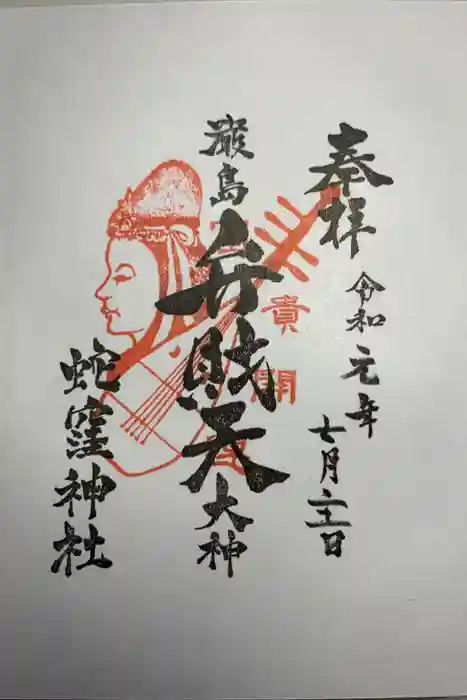 奉拝
令和元年
七月二十一日
厳島
弁財天
大神
蛇窪神社
貴
開